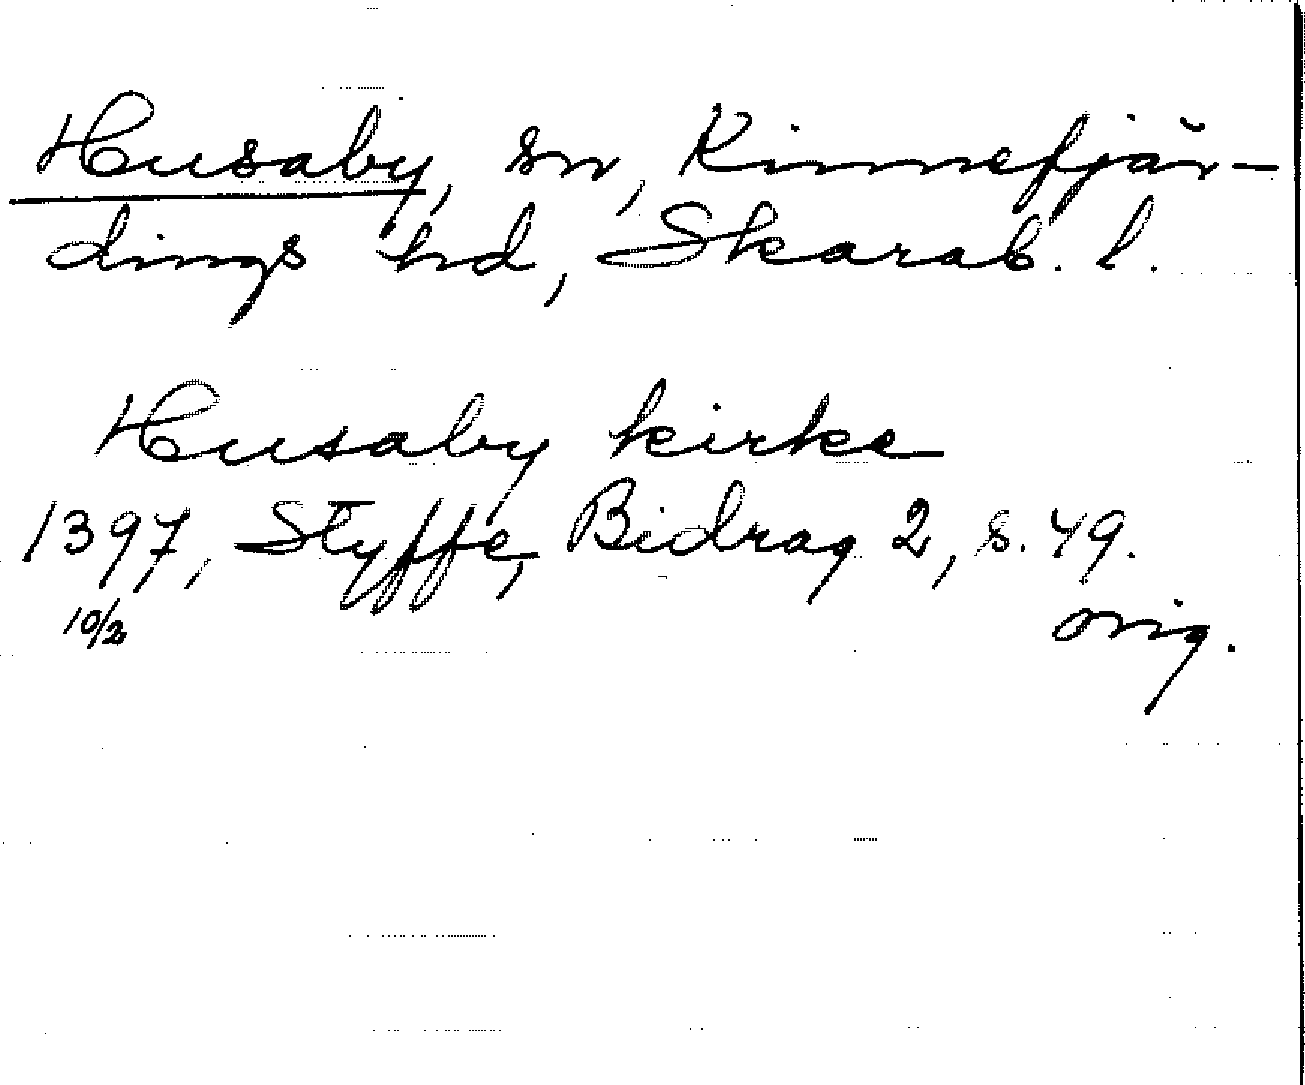 Husaby, sn, Kinnefjär-
dings hd, Skarab. l.
Husaby kirke
1397, Styffe, Bidrag 2, s. 49.
10/2 orig.